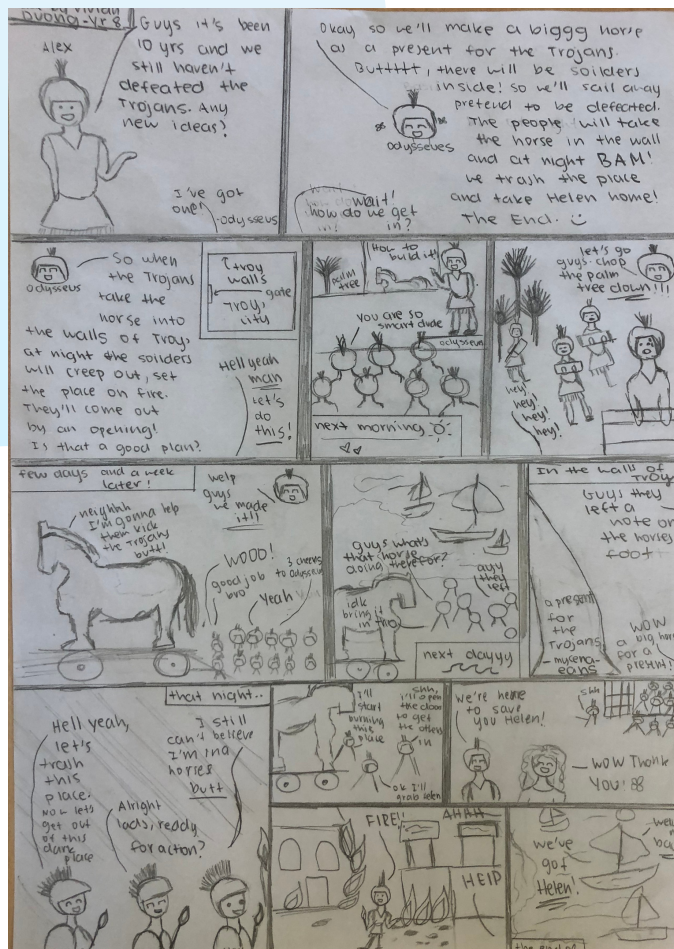 Duong-Yr 8
Alex
Guys it's been
10 yrs and we
still haven't
defeated the
Trojans. Any
new ideas?
I've got
one!
-odysseus
Okay so we'll make a biggg horse
as a present for the Trojans.
Butttttt, there will be soilders
inside! so we'll sail away
pretend to be defeated.
The people will take
the horse in the wall
and at night BAM!
we trash the place
and take Helen home!
The End. ☺
odysseues
wait!
how do we get
in?
So when
the Trojans
take the
horse into
the walls of Troy,
at night the soilders
will creep out, set
the place on fire.
They'll come out
by an opening!
Is that a good plan?
odysseus
↑troy
walls
gate
Troy,
city
Hell yeah
man
Let's
do
this!
How to
build it!
palm
tree
you are so
smart dude
odysseus
next morning
let's go
guys chop
the palm
tree down!!!
hey!
hey!
hey!
hey!
few days and a week
later!
neighhh
I'm gonna help
them kick
the Trojans
butt!
welp
guys
we made
it!!
WOOO!
good job
bro
3 cheers
to Odysseus
Yeah
guys whats
that horse
doing there for?
ayy
they
left
idk
bring it
in tho
next dayyy
In the walls of
TROY
Guys they
left a
note on
the horses
foot
a present
for
the
Trojans
- mycena-
eans
WOW
a big
for a
present!
that night..
Hell yeah,
let's
trash
this
place.
Now lets
get out
of this
dark
place
Alright
lads, reddy
for acton?
I still
can't believe
I'm ina
horses
butt
I'll
start
burning
this
place
shh,
i'll open
the door
to get
the others
in
ok I'll
grab Helen
we're here
to save
you Helen!
shh
WOW Thank
YOU!
FIRE!!
AHHH
HElP
we've
got
Helen!